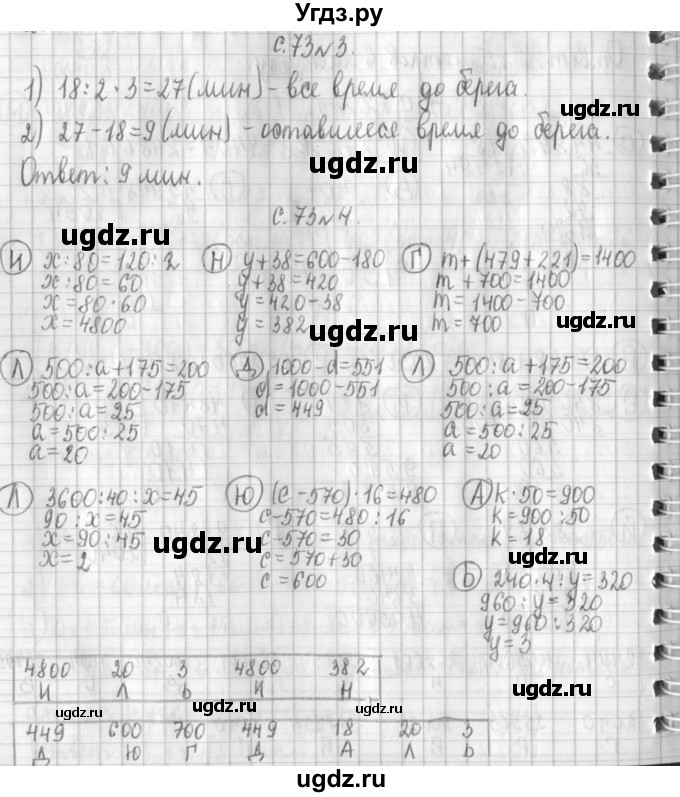 Угдз.ру
с.73 №3.
1) 18:2·3=27(мин) - все время до берега.
2) 27-18=9(мин) - оставшееся время до берега.
ugdz.ru
Ответ: 9 мин.
с.73 №4.
ugdz.ru
И x:80=120:2
x:80=60
x=80·60
x=4800
Н y+38=600-180
y+38=420
y=420-38
y=382
ugdz.ru
Г m+(479+221)=1400
m+700=1400
m=1400-700
m=700
ugdz.ru
Л 500:a+175=200
500:a=200-175
500:a=25
a=500:25
a=20
Д 1000-d=551
d=1000-551
d=449
Л 500:a+175=200
500:a=200-175
500:a=25
a=500:25
a=20
Л 3600:40:x=45
90:x=45
x=90:45
x=2
ugdz.ru
Ю (c-570)·16=480
c-570=480:16
c-570=30
c=570+30
c=600
А k·50=900
k=900:50
k=18
ugdz.ru
Ь 240·4:y=320
960:y=320
y=960:320
y=3
4800 20 3 4800 382
И Л Ь И Н
ugdz.ru
ugdz.ru
ugdz.ru
449 600 700 449 18 20 3
Д Ю Г Д А Л Ь
ugdz.ru
ugdz.ru
ugdz.ru